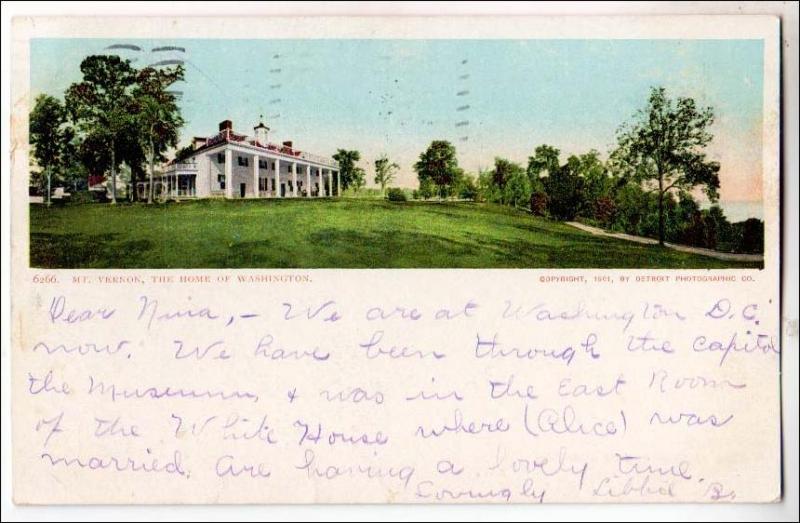 6266. MT. VERNON, THE HOME OF WASHINGTON.
COPYRIGHT, 1901, BY DETROIT PHOTOGRAPHIC CO.
Dear Nina, - We are at Washington D.C.
now. We have been through the capitol
the Museum, & was in the East Room
of the White House where (Alice) was
married. Are having a lovely time.
Lovingly Libbie B.